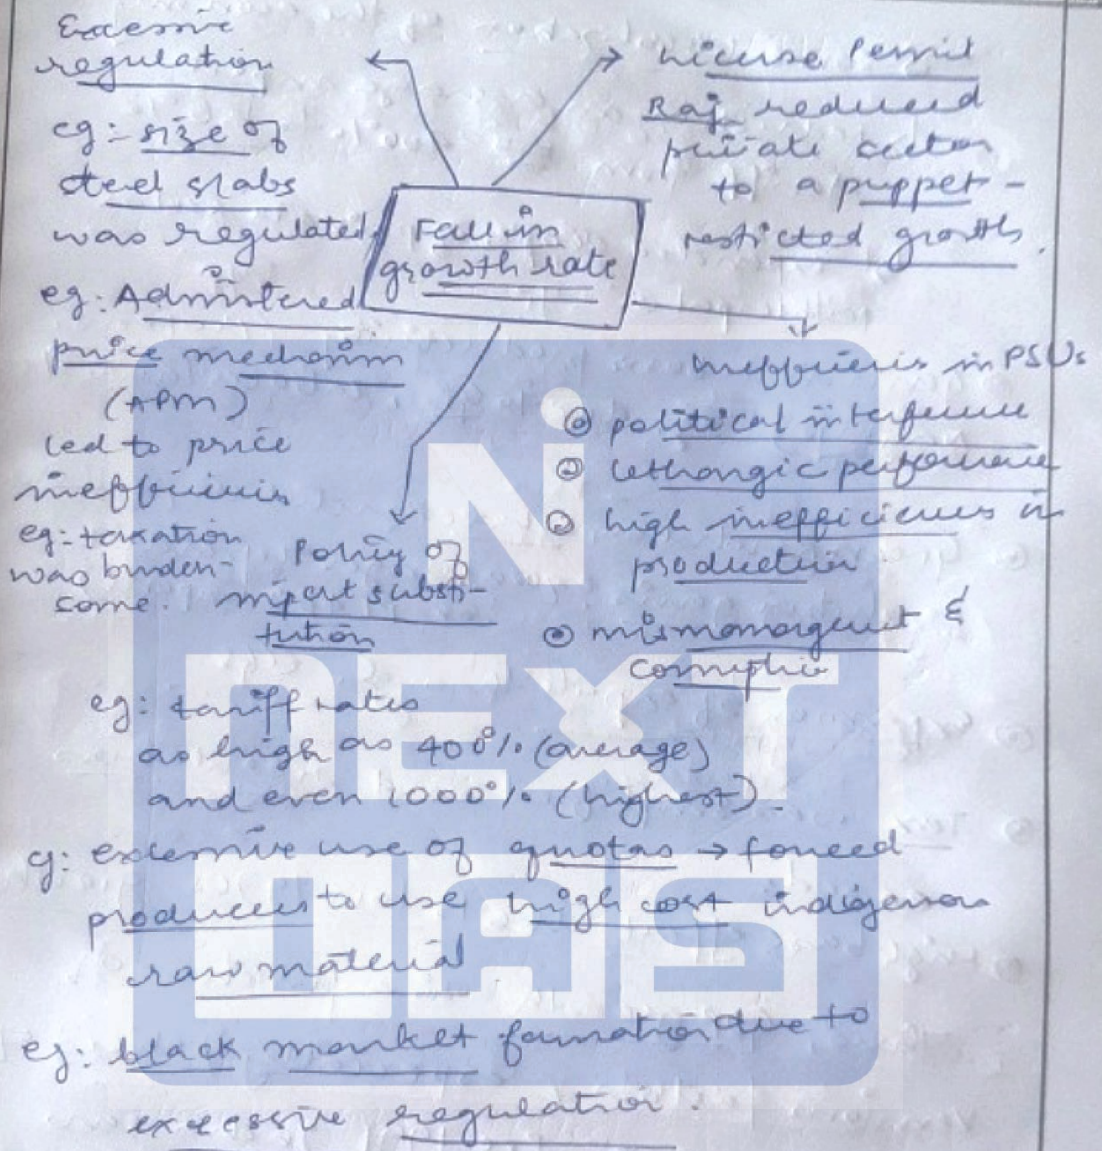 Excessive
regulation
eg:- size of
steel slabs
was regulated
eg: Administered
price mechanism
(APM)
led to price
inefficiencies
eg:- taxation
was burden-
some.
License Permit
Raj reduced
private sector
to a puppet -
restricted growth.
Fall in
growth rate
Inefficiencies in PSUs
political interference
lethargic performance
high inefficiencies in
production
mismanagement &
corruption
Policy of
import substi-
tution
eg: tariff rates
as high as 400% (average)
and even 1000% (highest).
eg: excessive use of quotas → forced
producers to use high cost indigenous
raw material
eg: black market formation due to
excessive regulation.
Ni
NEXT
IAS